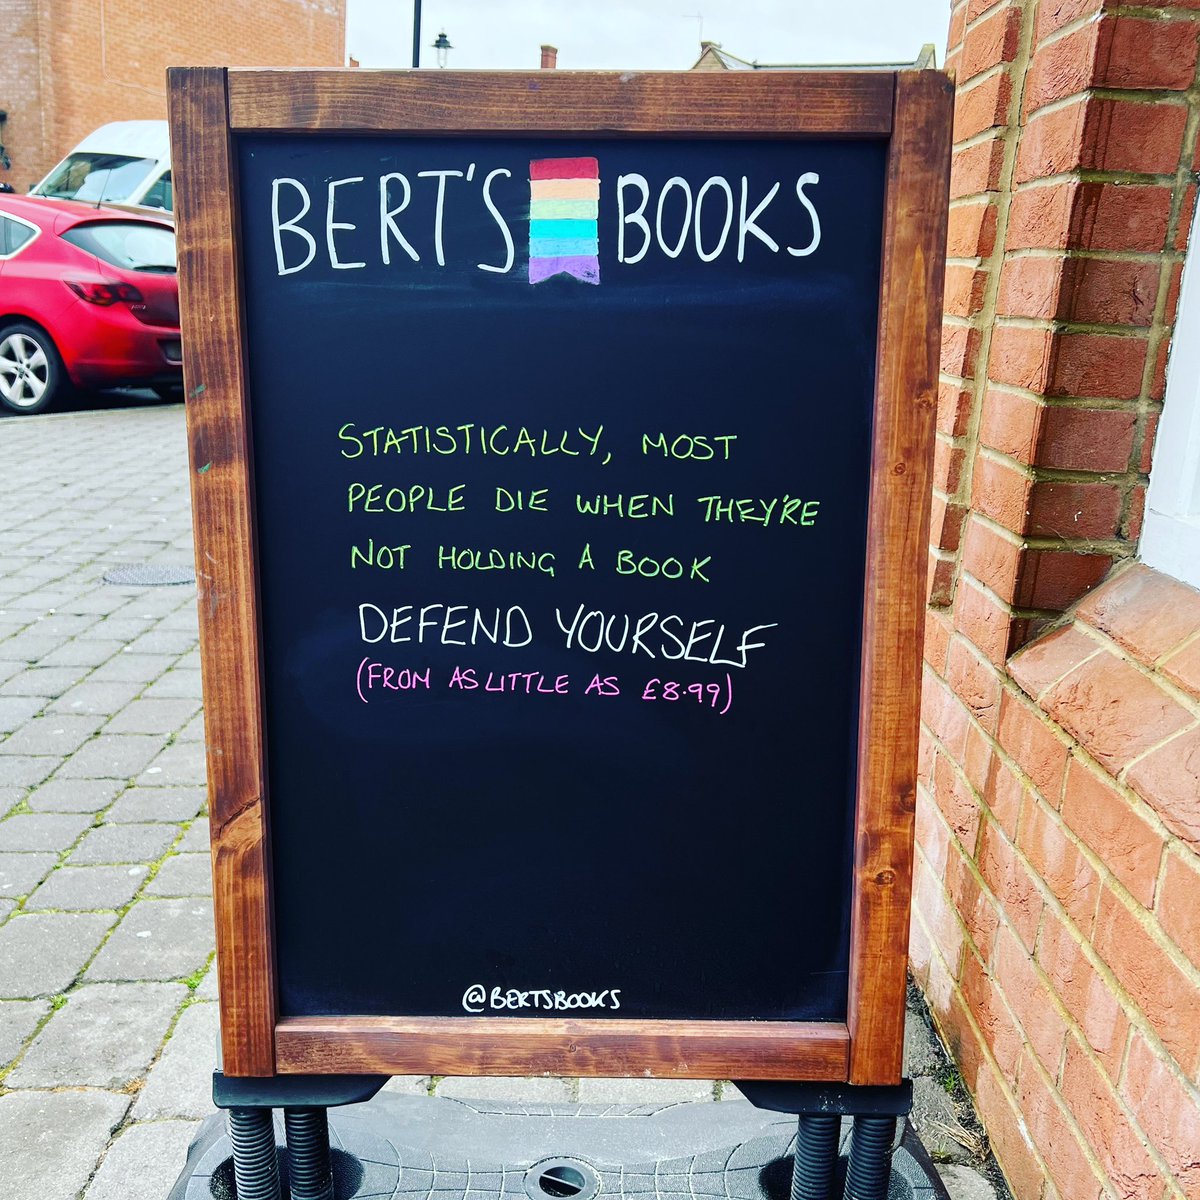 BERT'S BOOKS
STATISTICALLY, MOST
PEOPLE DIE WHEN THEY'RE
NOT HOLDING A BOOK
DEFEND YOURSELF
(FROM AS LITTLE AS £8.99)
@BERTSBOOKS